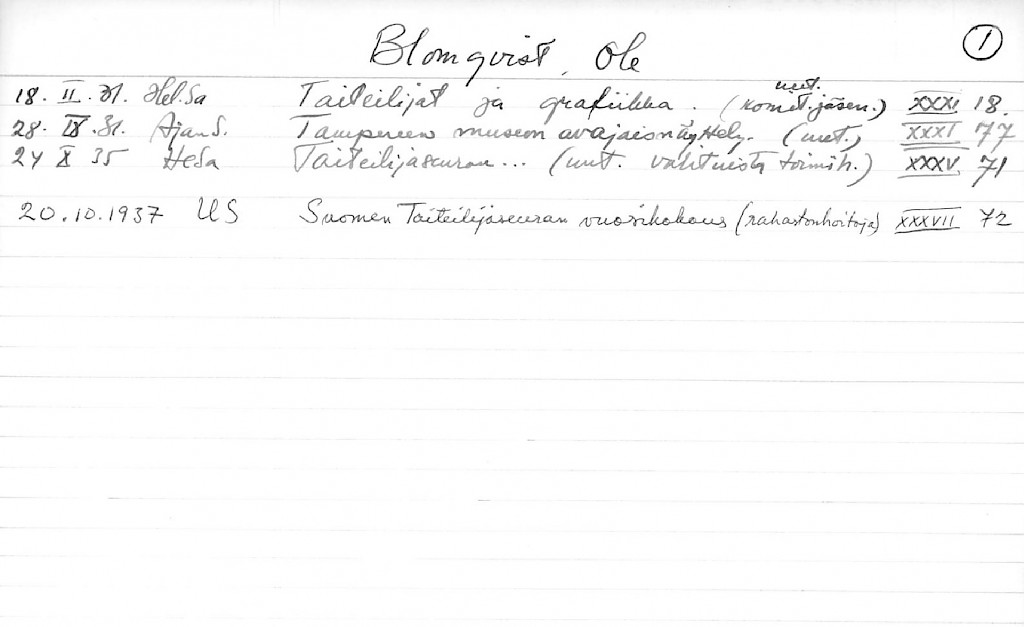 Blomqvist, Ole 1
18. II. 31. Hel.Sa Taiteilijat ja grafiikka. (komit. jäsen.) XXXI 18.
mut.
28. IX. 31. Ajan S. Tampereen museon avajaisnäyttely. (mut.) XXXI 77
24 X 35 HeSa Taiteilijaseuran... (mut. valituista toimih.) XXXV. 71
20.10.1937 US Suomen Taiteilijaseuran vuosikokous (rahastonhoitaja) XXXVII 72